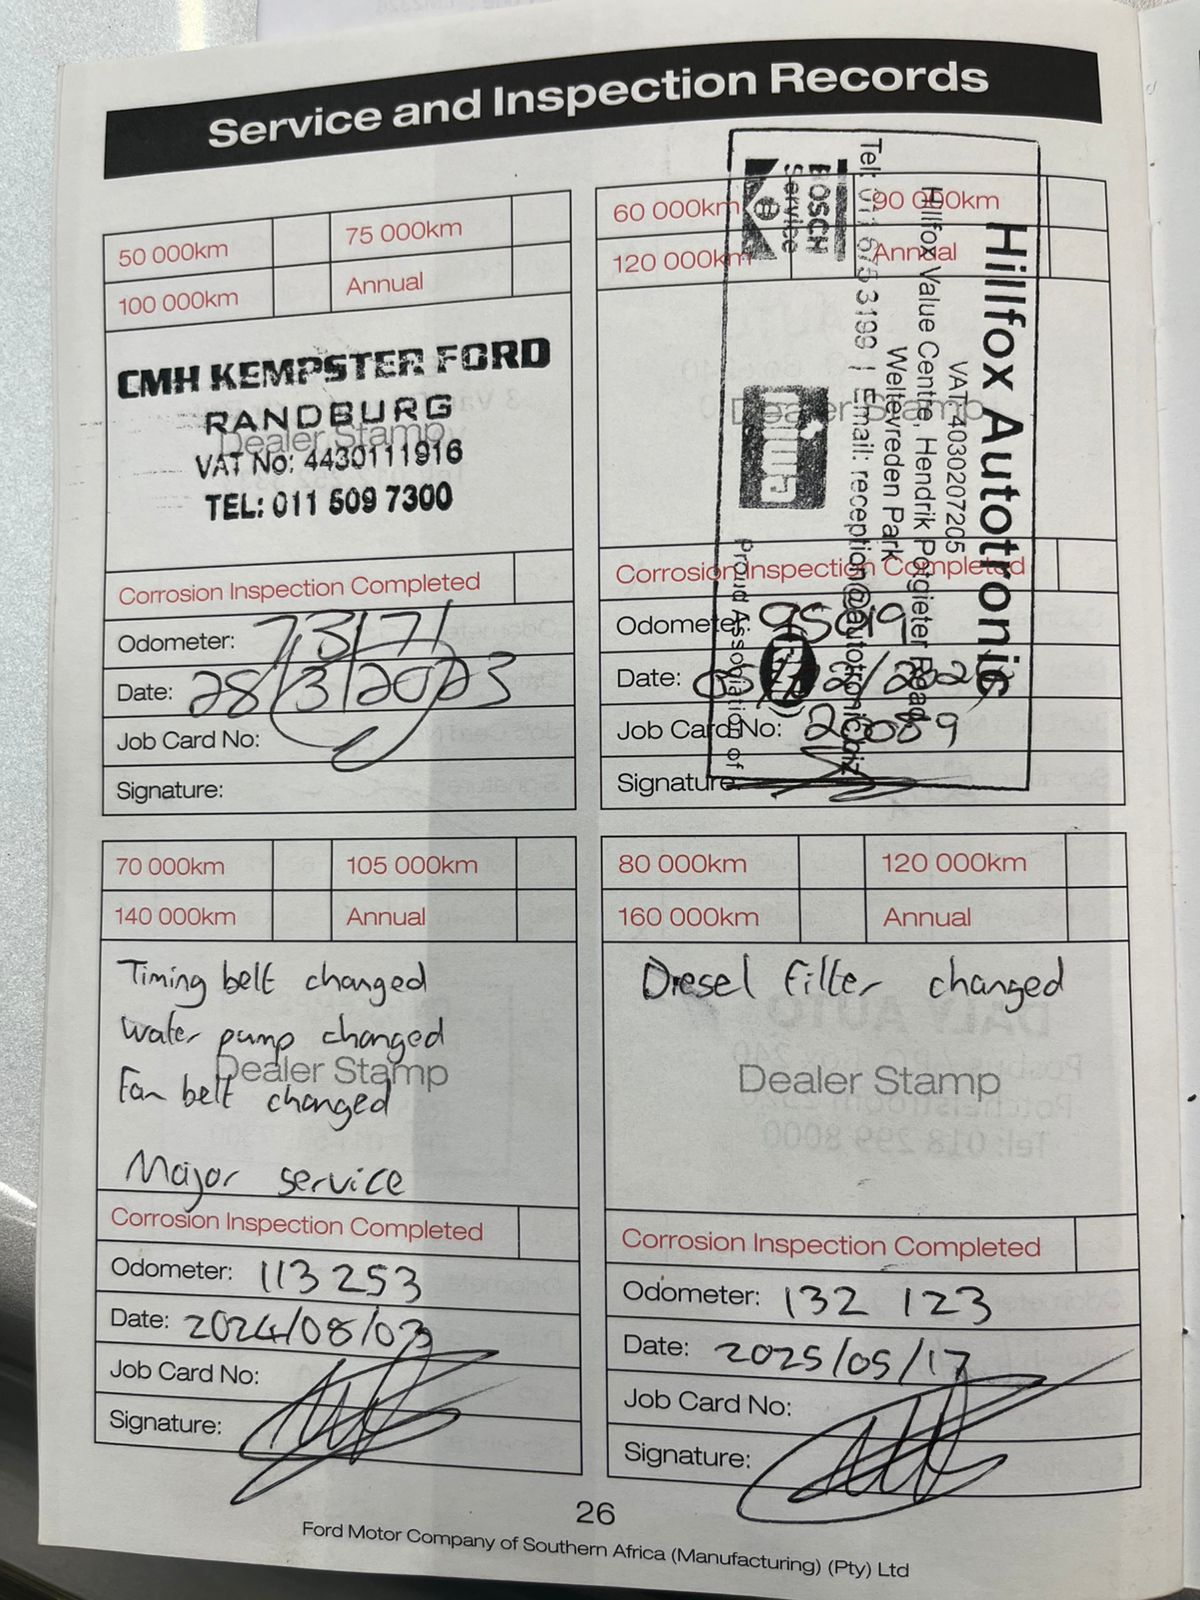 Service and Inspection Records
50 000km
75 000km
100 000km
Annual
CMH KEMPSTER FORD
RANDBURG
Dealer Stamp
VAT No: 4430111916
TEL: 011 509 7300
Corrosion Inspection Completed
Odometer: 73171
Date: 28/3/2023
Job Card No:
Signature:
60 000km
90 000km
120 000km
Annual
Dealer Stamp
Hillfox Autotronic
VAT: 4030207205
Hillfox Value Centre, Hendrik Potgieter Road
Weltevreden Park
Tel: 011 675 3199 | Email: reception@autotronic.biz
BOSCH
Service
Proud Association of
Corrosion Inspection Completed
Odometer: 95619
Date:
Job Card No:
Signature:
70 000km
105 000km
140 000km
Annual
Timing belt changed
Water pump changed
Dealer Stamp
Fan belt changed
Major service
Corrosion Inspection Completed
Odometer: 113 253
Date: 2024/08/03
Job Card No:
Signature:
80 000km
120 000km
160 000km
Annual
Diesel filter changed
Dealer Stamp
Corrosion Inspection Completed
Odometer: 132 123
Date: 2025/05/17
Job Card No:
Signature:
26
Ford Motor Company of Southern Africa (Manufacturing) (Pty) Ltd